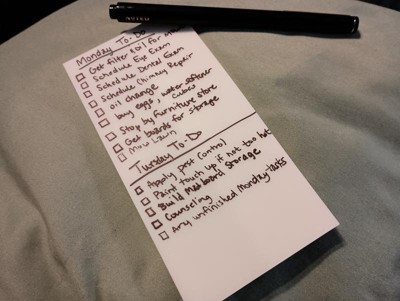 NOTED
Monday To-Do
Get filter & oil for
Schedule Eye Exam
Schedule Dental Exam
Schedule Chimney Repair
oil change
buy eggs, water softener
cubes
Stop by furniture store
Get boards for storage
Mow Lawn
Tuesday To-Do
Apply pest control
Paint touch up if not too hot
Build Mop board storage
Counseling
Any unfinished Monday tasks